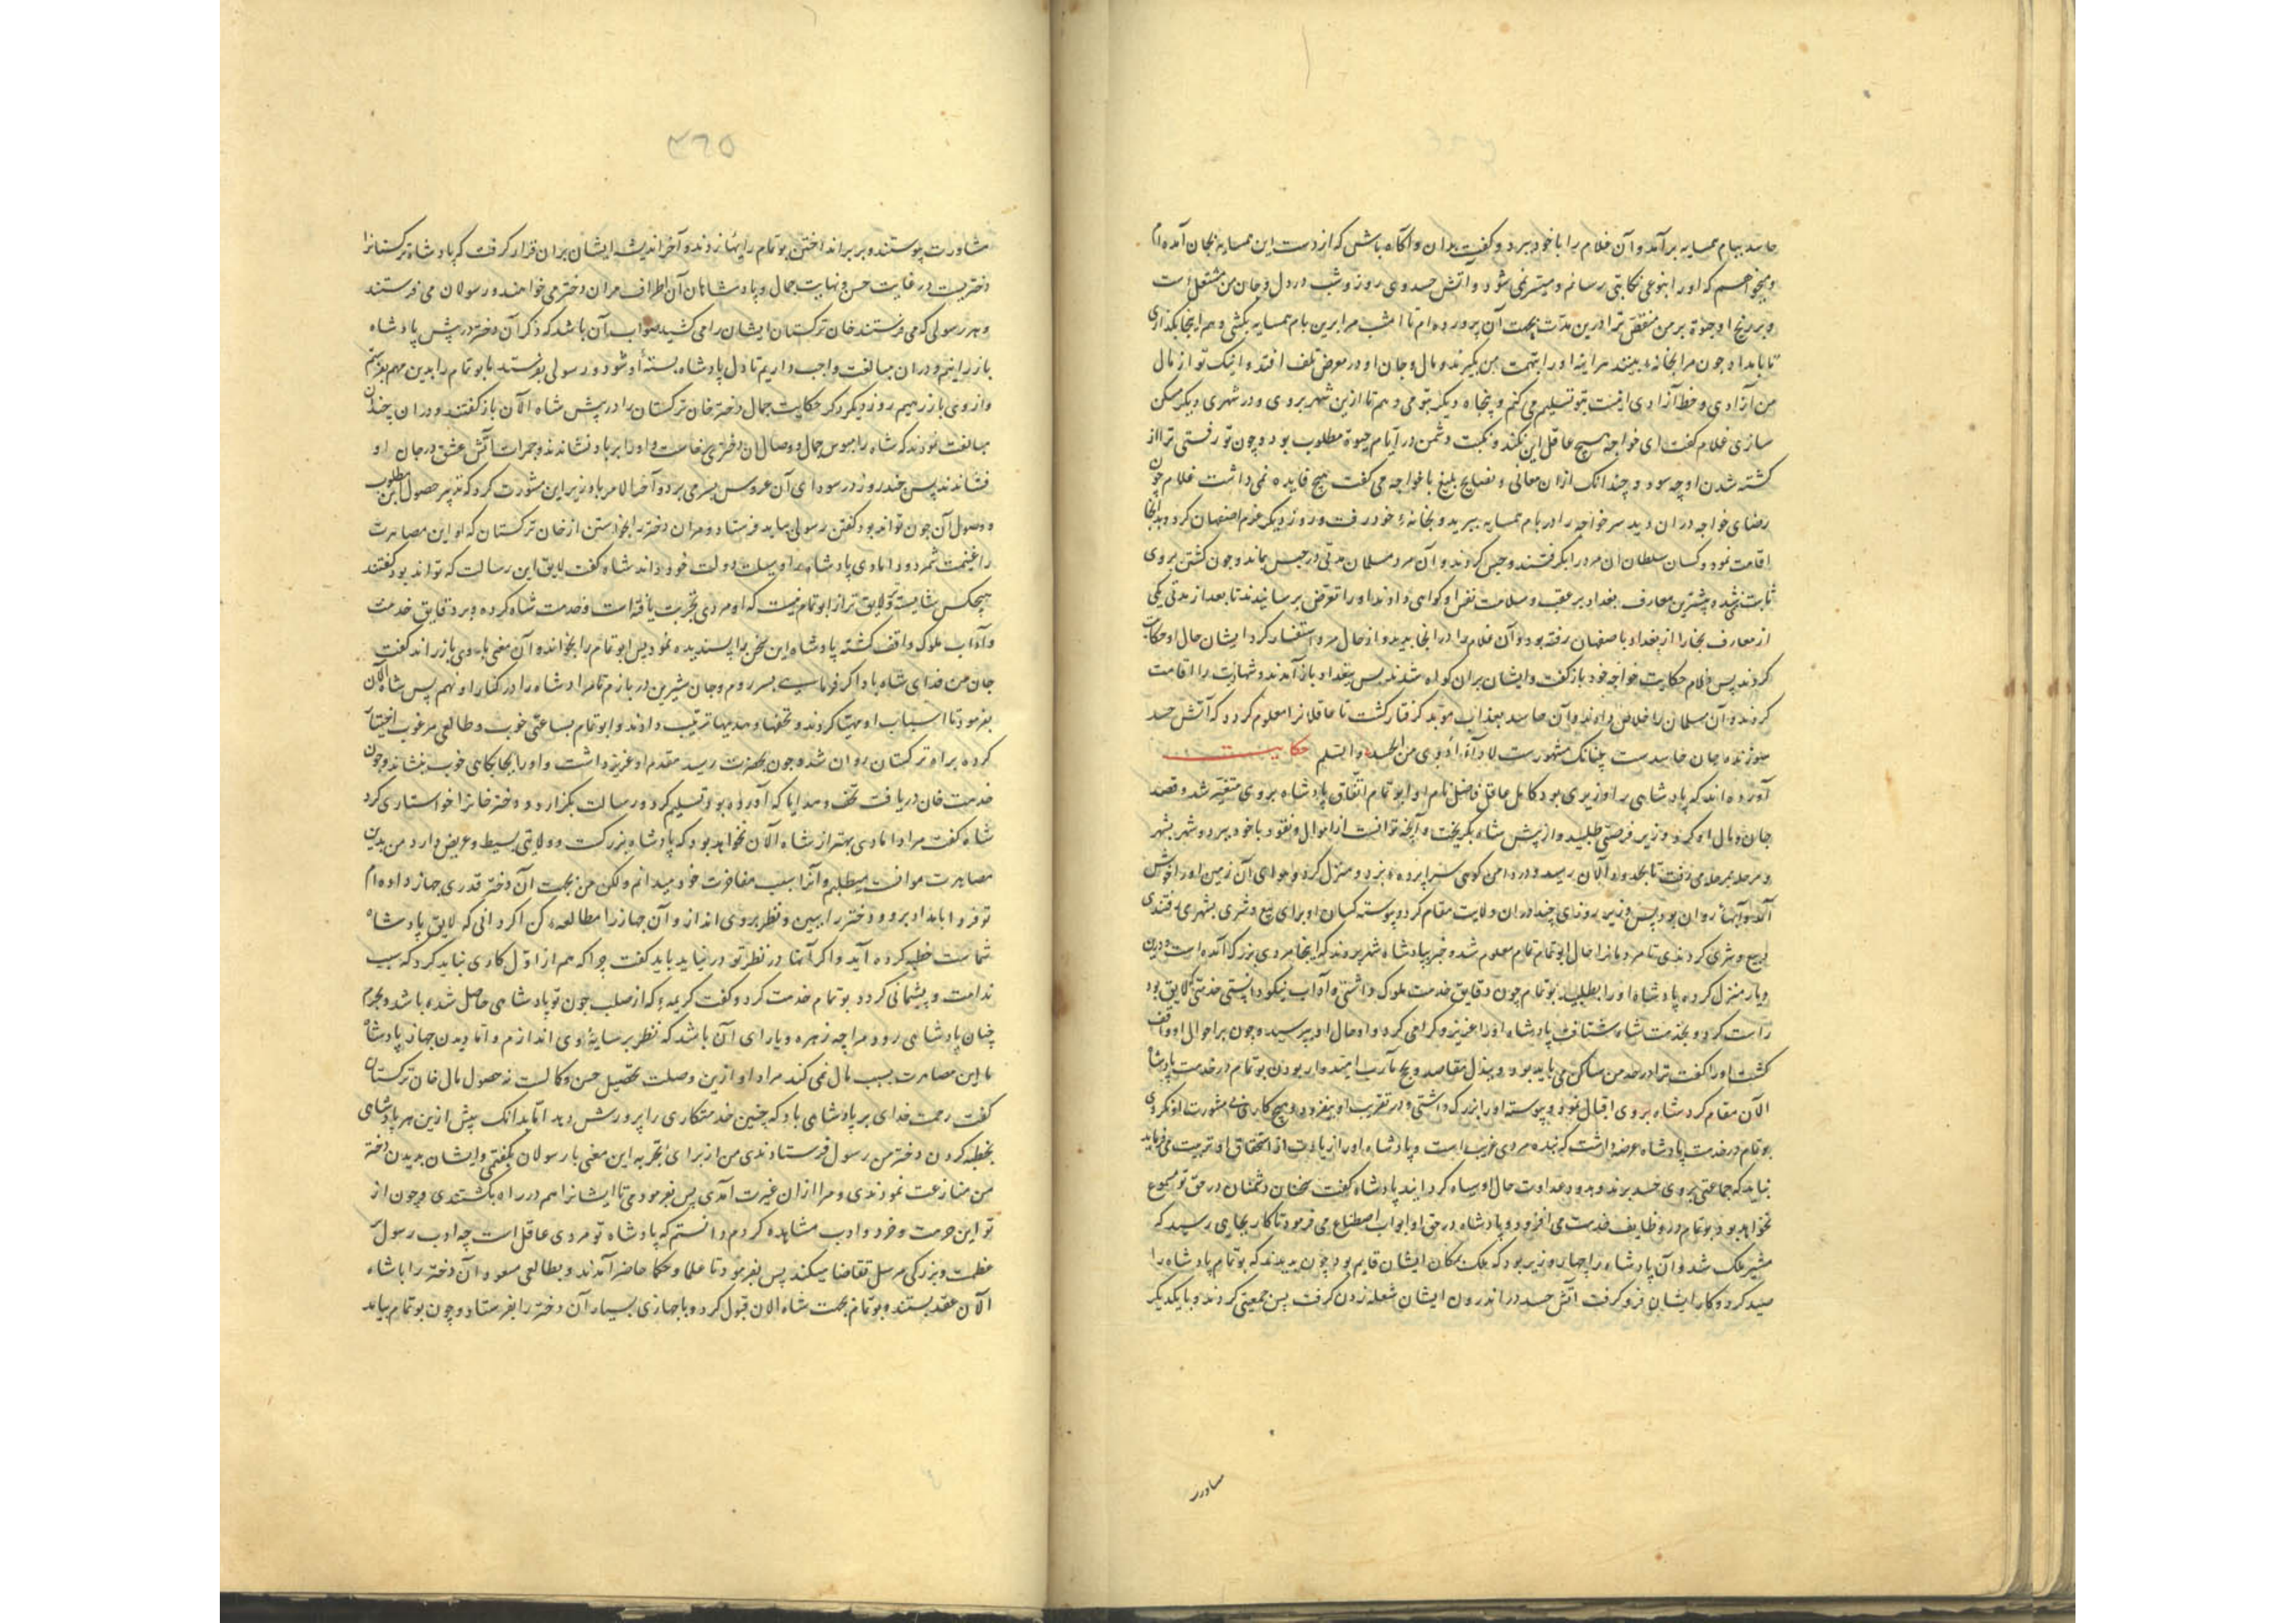 حاسد ببام همسایه برآمد و آن غلام را با خود ببرد و گفت بدان و آگاه باش که از دست این همسایه بجان آمده‌ام
و میخواهم که او را بنوعی نکایتی رسانم و میسر نمی شود و آتش حسد وی روز و شب در دل و جان من مشتعل است
و بر رنج او حیوة بر من منغص ترا درین مدت بجهت آن پرورده‌ام تا امشب مرا برین بام همسایه بکشی و هم اینجا بگذاری
تا بامداد چون مرا بخانه او بینند هر آینه او را بتهمت من بگیرند و مال و جان او در معرض تلف افتد و اینک تو از مال
من آزادی و خط آزادی اینست بتو تسلیم می کنم و پنجاه دیگر بتو می دهم تا ازین شهر بروی و در شهری دیگر مسکن
سازی غلام گفت ای خواجه هیچ عاقل این نکند و نکبت دشمن در ایام حیوة مطلوب بود و چون تو رفتی ترا از
کشته شدن او چه سود و چندانک ازان معانی و نصایح بلیغ با خواجه می گفت هیچ فایده نمی داشت غلام چون
رضای خواجه دران دید سر خواجه را در بام همسایه ببرید و بخانهٔ خود رفت و روز دیگر عزم اصفهان کرد و بدانجا
اقامت نمود و کسان سلطان آن مرد را بگرفتند و حبس کردند و آن مرد مسلمان مدتی در حبس بماند و چون کشتن بروی
ثابت نشده بیشترین معارف بغداد بر عفت و سلامت نفس او گواهی دادند او را تعرض نرسانیدند تا بعد از مدتی یکی
از معارف تجار از بغداد باصفهان رفته بود و آن غلام را در آنجا بدید و از حال مرد استفسار کرد ایشان حال او حکایت
کردند پس غلام حکایت خواجه خود بازگفت و ایشان بران گواه شدند پس ببغداد باز آمدند و شهادت را اقامت
کردند و آن مسلمان را خلاص دادند و آن حاسد بعذاب موبد گرفتار گشت تا عاقلانرا معلوم گردد که آتش حسد
سوزنده جان حاسدست چنانک مشهورست لا داء ادوی من الحسد و السلم حکایت
آورده‌اند که پادشاهی را وزیری بود کامل عاقل فاضل نام او ابو تمام اتفاق پادشاه بروی متغیر شد و قصد
جان و مال او کرد و وزیر فرصتی طلبید و از پیش شاه بگریخت و آنچه توانست از اموال و نقود با خود ببرد و شهر بشهر
و مرحله بمرحله می رفت تا بحدود آلان رسید و در دامن کوهی سراپرده بزد و منزل کرد و هوای آن زمین او را خوش
آمد و آبها روان بود پس وزیر روزی چند دران ولایت مقام کرد و پیوسته کسان او برای بیع و شری بشهر می رفتندی
و بیع و شری کردندی تا مردمانرا حال ابو تمام تمام معلوم شد و خبر بپادشاه شهر بردند که اینجا مردی بزرگ آمده است و درین
دیار منزل کرده پادشاه او را بطلبید بو تمام چون دقایق خدمت ملوک داشتی و آداب نیکو دانستی خدمتی که لایق بود
راست کرد و بخدمت شاه شتافت پادشاه او را عزیز و گرامی کرد و از حال او بپرسید و چون بر احوال او واقف
گشت او را گفت ترا در خدمت من ساکن می باید بود و ببذل مقاصد و نجح مآرب امیدوار بودن بو تمام در خدمت پادشاه
الآن مقام کرد شاه بروی اقبال نمود و پیوسته او را بزرگ داشتی و در تقریب او بیفزود و هیچ کاری بی مشورت او نکردی
بو تمام در خدمت پادشاه عرضه داشت که بنده مردی غریب است و پادشاه او را زیادت از استحقاق او تربیت می فرماید
نباید که جماعتی بروی حسد برند و بدود عداوت حال او سیاه گردانند پادشاه گفت سخنان دشمنان در حق تو مسموع
نخواهد بود بو تمام در وظایف خدمت می افزود و پادشاه در حق او ابواب اصطناع می فرمود تا کار بجایی رسید که
مشیر ملک شد و آن پادشاه را چهار وزیر بود که ملک بمکان ایشان قایم بود چون بدیدند که بو تمام پادشاه را
صید کرد و کار ایشان فرو گرفت آتش حسد در اندرون ایشان شعله زدن گرفت پس جمعیتی کردند و با یکدیگر
مشاورت پیوستند و بر برانداختن بو تمام رایها زدند و آخر اندیشه ایشان بران قرار گرفت که پادشاه ترکستانرا
دختریست در غایت حسن و نهایت جمال و پادشاهان آن اطراف مر آن دختر می خواهند و رسولان می فرستند
و هر رسولی که می فرستند خان ترکستان ایشان را می کشد صواب آن باشد که ذکر آن دختر در پیش پادشاه
باز رانیم و دران مبالغت واجب داریم تا دل پادشاه بستهٔ او شود و رسولی بفرستد تا بو تمام را بدین مهم بفرستیم
و از وی باز رهیم روز دیگر ذکر حکایت جمال دختر خان ترکستان را در پیش شاه الآن باز گفتند و دران چندان
مبالغت نمودند که شاه را هوس جمال و وصال آن دختر بخاست و او را بر باد نشاندند و جمرات آتش عشق در جان او
فشاندند پس چند روز در سودای آن عروس بسر می برد و آخر الامر با وزیر این مشورت کرد که تدبیر حصول این مطلوب
و وصول آن چون تواند بود گفتند رسولی بباید فرستاد و مر آن دختر را بخواستن از خان ترکستان که او این مصاهرت
را غنیمت شمرد و دامادی پادشاه را وسیلت دولت خود داند شاه گفت لایق این رسالت که تواند بود گفتند
هیچکس شایسته و لایق تر از ابو تمام نیست که او مردی تجربت یافته است و خدمت شاه کرده و بر دقایق خدمت
و آداب ملوک واقف گشته پادشاه این سخن را پسندیده نمود پس ابو تمام را بخواند و آن معنی با وی باز راند گفت
جان من فدای شاه باد اگر فرمایی بسر روم و جان شیرین در بازم تا مراد شاه را در کنار او نهم پس شاه الآن
بفرمود تا اسباب او مهیا کردند و تحفها و هدیها ترتیب دادند و ابو تمام بساعتی خوب و طالعی مرغوب اختیار
کرده براه ترکستان روان شد و چون بحضرت رسید مقدم او عزیز داشت و او را بجایگاهی خوب بنشاند و چون
خدمت خان دریافت تحف و هدایا که آورده بود تسلیم کرد و رسالت بگزارد و دختر خانرا خواستاری کرد
شاه گفت مرا دامادی بهتر از شاه الآن نخواهد بود که پادشاه بزرگست و ولایتی بسیط و عریض دارد من بدین
مصاهرت موافقت میطلبم و آنرا سبب مفاخرت خود میدانم ولکن من بجهت آن دختر قدری جهاز داده‌ام
تو فردا بامداد برو و دختر را ببین و نظر بروی انداز و آن جهاز را مطالعه کن اگر دانی که لایق پادشاه
شماست خطبه کرده آید و اگر آنها در نظر تو در نیاید باید گفت چرا که هم از اول کاری نباید کرد که سبب
ندامت و پشیمانی گردد بو تمام خدمت کرد و گفت کریمهٔ که از صلب چون تو پادشاهی حاصل شده باشد و بحرم
چنان پادشاهی رود مرا چه زهره و یارای آن باشد که نظر بر سایهٔ وی اندازم و اما دیدن جهاز پادشاه
ما این مصاهرت بسبب مال نمی کند مراد او ازین وصلت تحصیل حسن وکالت نه حصول مال خان ترکستان
گفت رحمت خدای بر پادشاهی باد که چنین خدمتکاری را پرورش دهد اما بدانک پیش ازین هر پادشاهی
بخطبه کردن دختر من رسول فرستادندی من از برای تجربه این معنی با رسولان بگفتمی و ایشان بدیدن دختر
من منازعت نمودندی و مرا ازان غیرت آمدی پس بفرمودمی تا ایشانرا هم در راه بکشتندی و چون از
تو این حرمت و خرد و ادب مشاهده کردم دانستم که پادشاه تو مردی عاقل است چه ادب رسول
عظمت و بزرگی مرسل تقاضا میکند پس بفرمود تا علما و حکما حاضر آمدند و بطالعی مسعود آن دختر را با شاه
الآن عقد بستند و بو تمام بجهت شاه الان قبول کرد و با جهازی بسیار آن دختر را بفرستاد و چون بو تمام بیامد